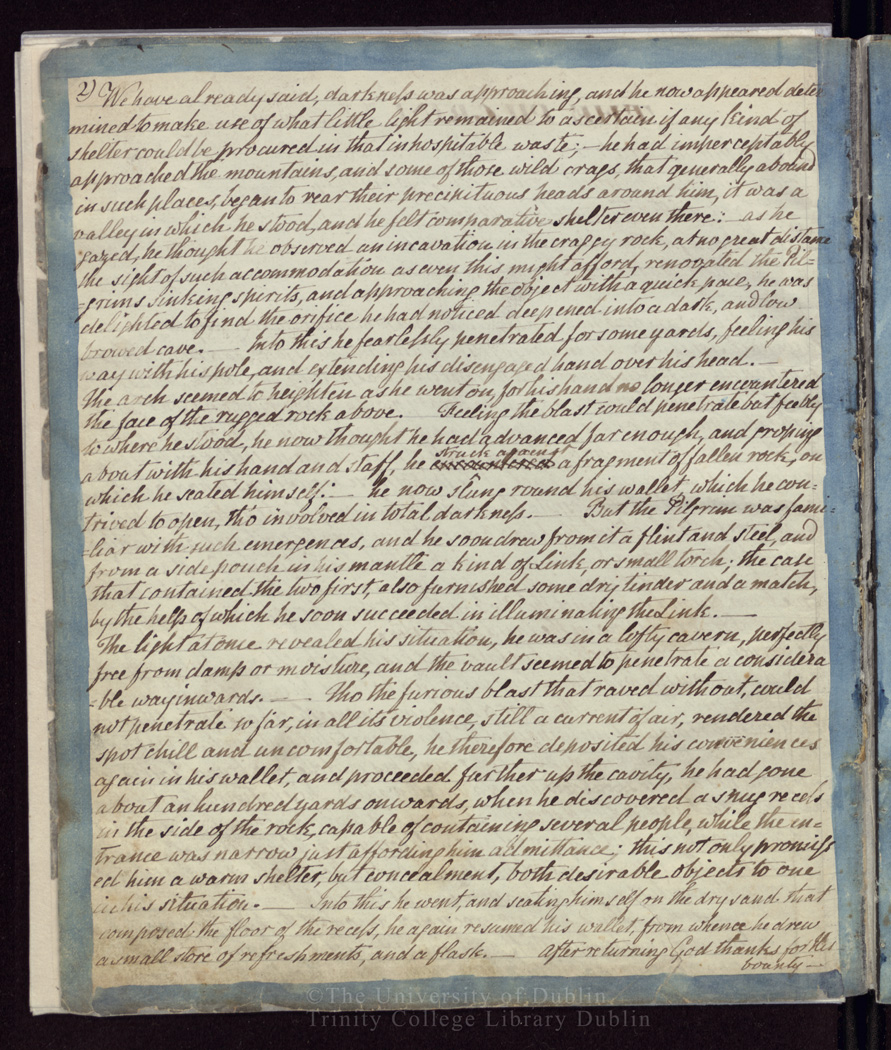 2) We have already said, darkness was approaching, and he now appeared deter
mined to make use of what little light remained to ascertain if any kind of
shelter could be procured in that inhospitable waste; – he had imperceptably
approached the mountains, and some of those wild crags, that generally abound
in such places, began to rear their precipituous heads around him, it was a
valley in which he stood, and he felt comparative shelter even there: as he
gazed, he thought he observed an incavation in the craggy rock, at no great distance
the sight of such accommodation as even this might afford, renovated the Pil=
=grims sinking spirits, and approaching the object with a quick pace, he was
delighted to find the orifice he had noticed deepened into a dark, and low
browed cave. — Into this he fearlessly penetrated for some yards, feeling his
way with his pole, and extending his disengaged hand over his head. —
The arch seemed to heighten as he went on, for his hand no longer encountered
the face of the rugged rock above. Feeling the blast could penetrate but feebly
to where he stood, he now thought he had advanced far enough, and groping
struck against
about with his hand and staff, he encountered a fragment of fallen rock, on
which he seated himself: — he now slung round his wallet, which he con:
trived to open, tho' involved in total darkness. — But the Pilgrim was fami=
=liar with such emergences, and he soon drew from it a flint and steel, and
from a side pouch in his mantle a kind of Link, or small torch; the case
that contained the two first, also furnished some dry tinder and a match,
by the help of which he soon succeeded in illuminating the Link. —
The light at once revealed his situation, he was in a lofty cavern, perfectly
free from damp or moisture, and the vault seemed to penetrate a considera
=ble way inwards. — Tho the furious blast that raved without, could
not penetrate so far, in all its violence, still a current of air, rendered the
spot chill and uncomfortable, he therefore deposited his conveniences
again in his wallet, and proceeded further up the cavity, he had gone
about an hundred yards onwards, when he discovered a snug recess
in the side of the rock, capable of containing several people, while the en-
trance was narrow just affording him admittance; this not only promiss
ed him a warm shelter, but concealment, both desirable objects to one
in his situation. — Into this he went, and seating himself on the dry sand that
composed the floor of the recess, he again resumed his wallet, from whence he drew
a small store of refreshments, and a flask. — After returning God thanks for this
bounty —
©The University of Dublin
Trinity College Library Dublin